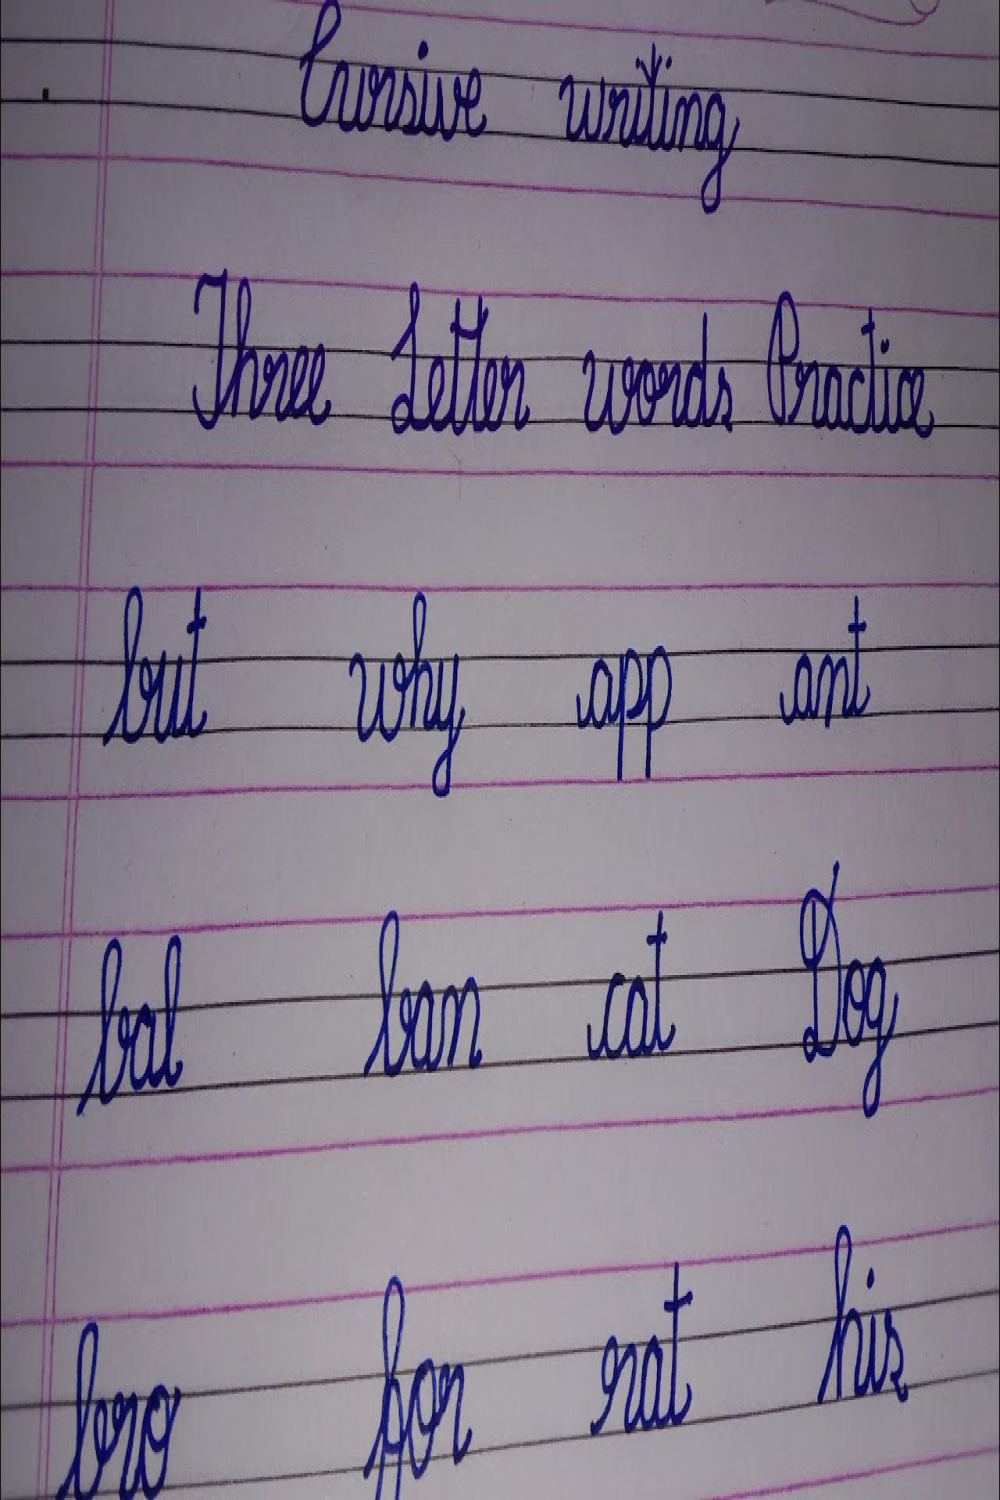 Cursive writing
Three Letter words Practice
but why app ant
bal ban cat Dog
bro for rat his